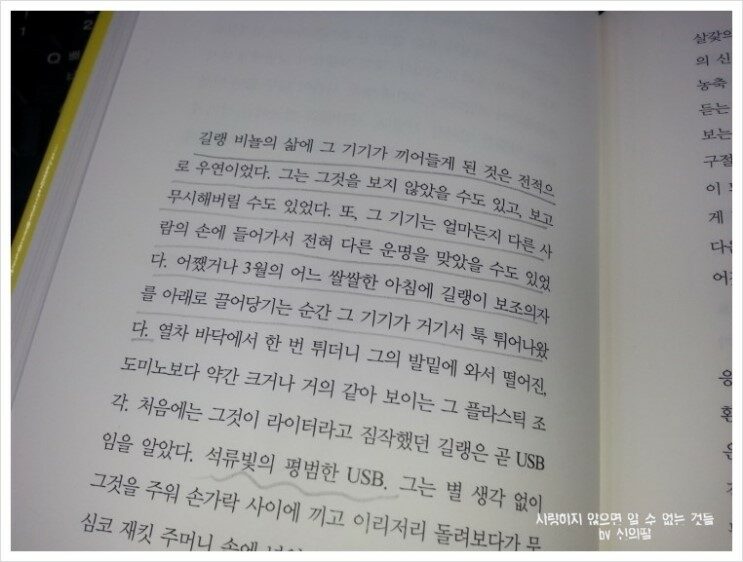 길랭 비뇰의 삶에 그 기기가 끼어들게 된 것은 전적으
로 우연이었다. 그는 그것을 보지 않았을 수도 있고, 보고
무시해버릴 수도 있었다. 또, 그 기기는 얼마든지 다른 사
람의 손에 들어가서 전혀 다른 운명을 맞았을 수도 있었
다. 어쨌거나 3월의 어느 쌀쌀한 아침에 길랭이 보조의자
를 아래로 끌어당기는 순간 그 기기가 거기서 툭 튀어나왔
다. 열차 바닥에서 한 번 튀더니 그의 발밑에 와서 떨어진,
도미노보다 약간 크거나 거의 같아 보이는 그 플라스틱 조
각. 처음에는 그것이 라이터라고 짐작했던 길랭은 곧 USB
임을 알았다. 석류빛의 평범한 USB. 그는 별 생각 없이
그것을 주워 손가락 사이에 끼고 이리저리 돌려보다가 무
심코 재킷 주머니 속에
살갗의
의 신
농축
듣는
보는
구절
이
게
다음
어졌
응
1
2
Q
사랑하지 않으면 알 수 없는 것들
by 신의팔